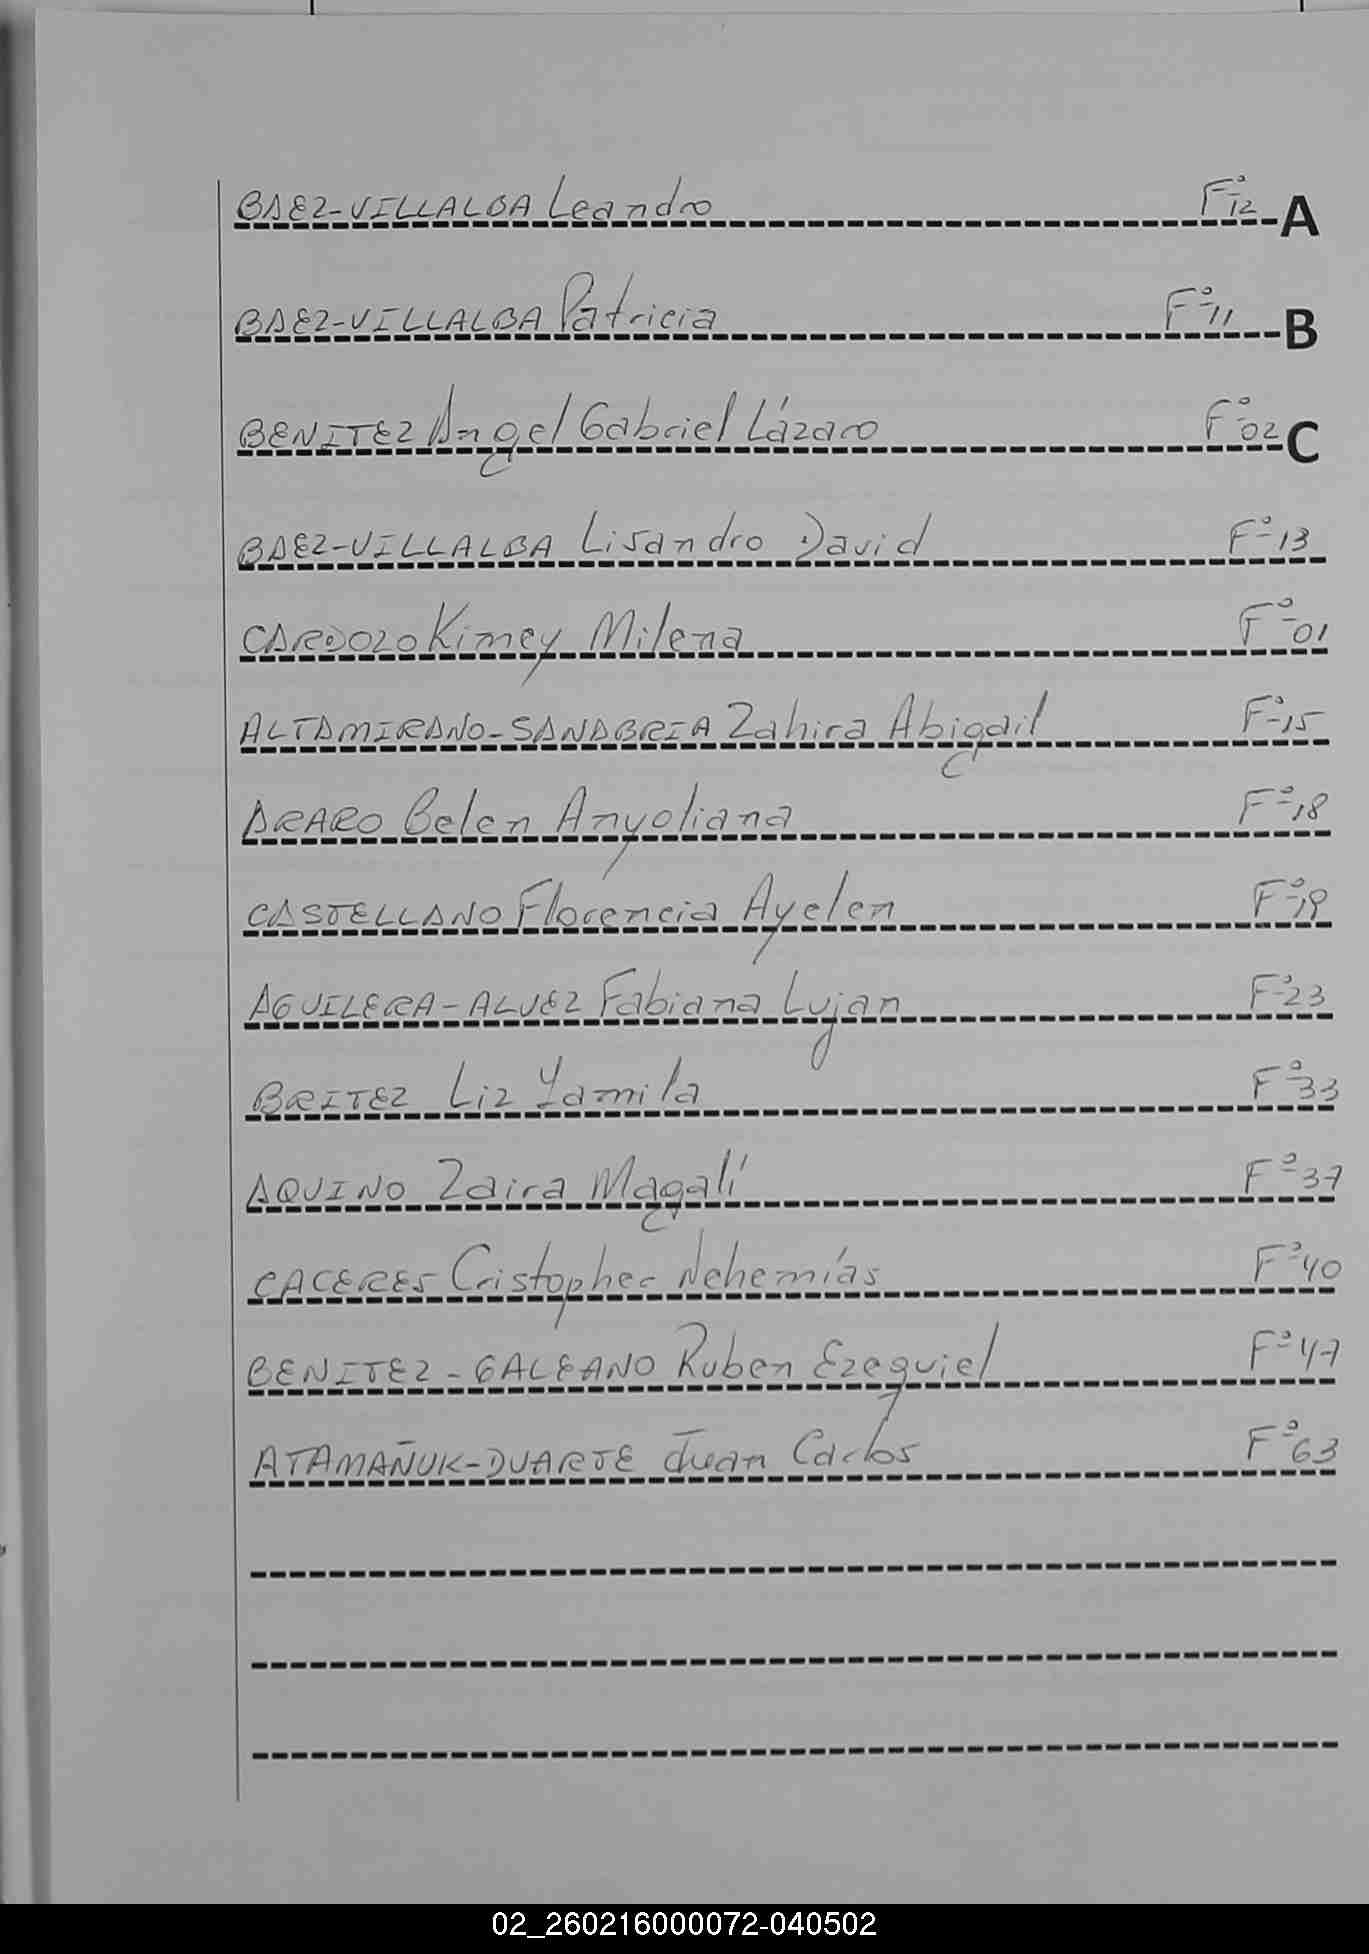 BAEZ-VILLALBA Leandro Fº12 A
BAEZ-VILLALBA Patricia Fº11 B
BENITEZ Angel Gabriel Lázaro Fº02 C
BAEZ-VILLALBA Lisandro David Fº13
CARDOZO Kimey Milena Fº01
ALTAMIRANO-SANABRIA Zahira Abigail Fº15
ARARO Belen Anyoliana Fº18
CASTELLANO Florencia Ayelen Fº19
AGUILERA-ALVEZ Fabiana Lujan Fº23
BRITEZ Liz Yamila Fº33
AQUINO Zaira Magalí Fº37
CACERES Cristopher Nehemías Fº40
BENITEZ-GALEANO Ruben Ezequiel Fº47
ATAMAÑUK-DUARTE Juan Carlos Fº63
02_260216000072-040502